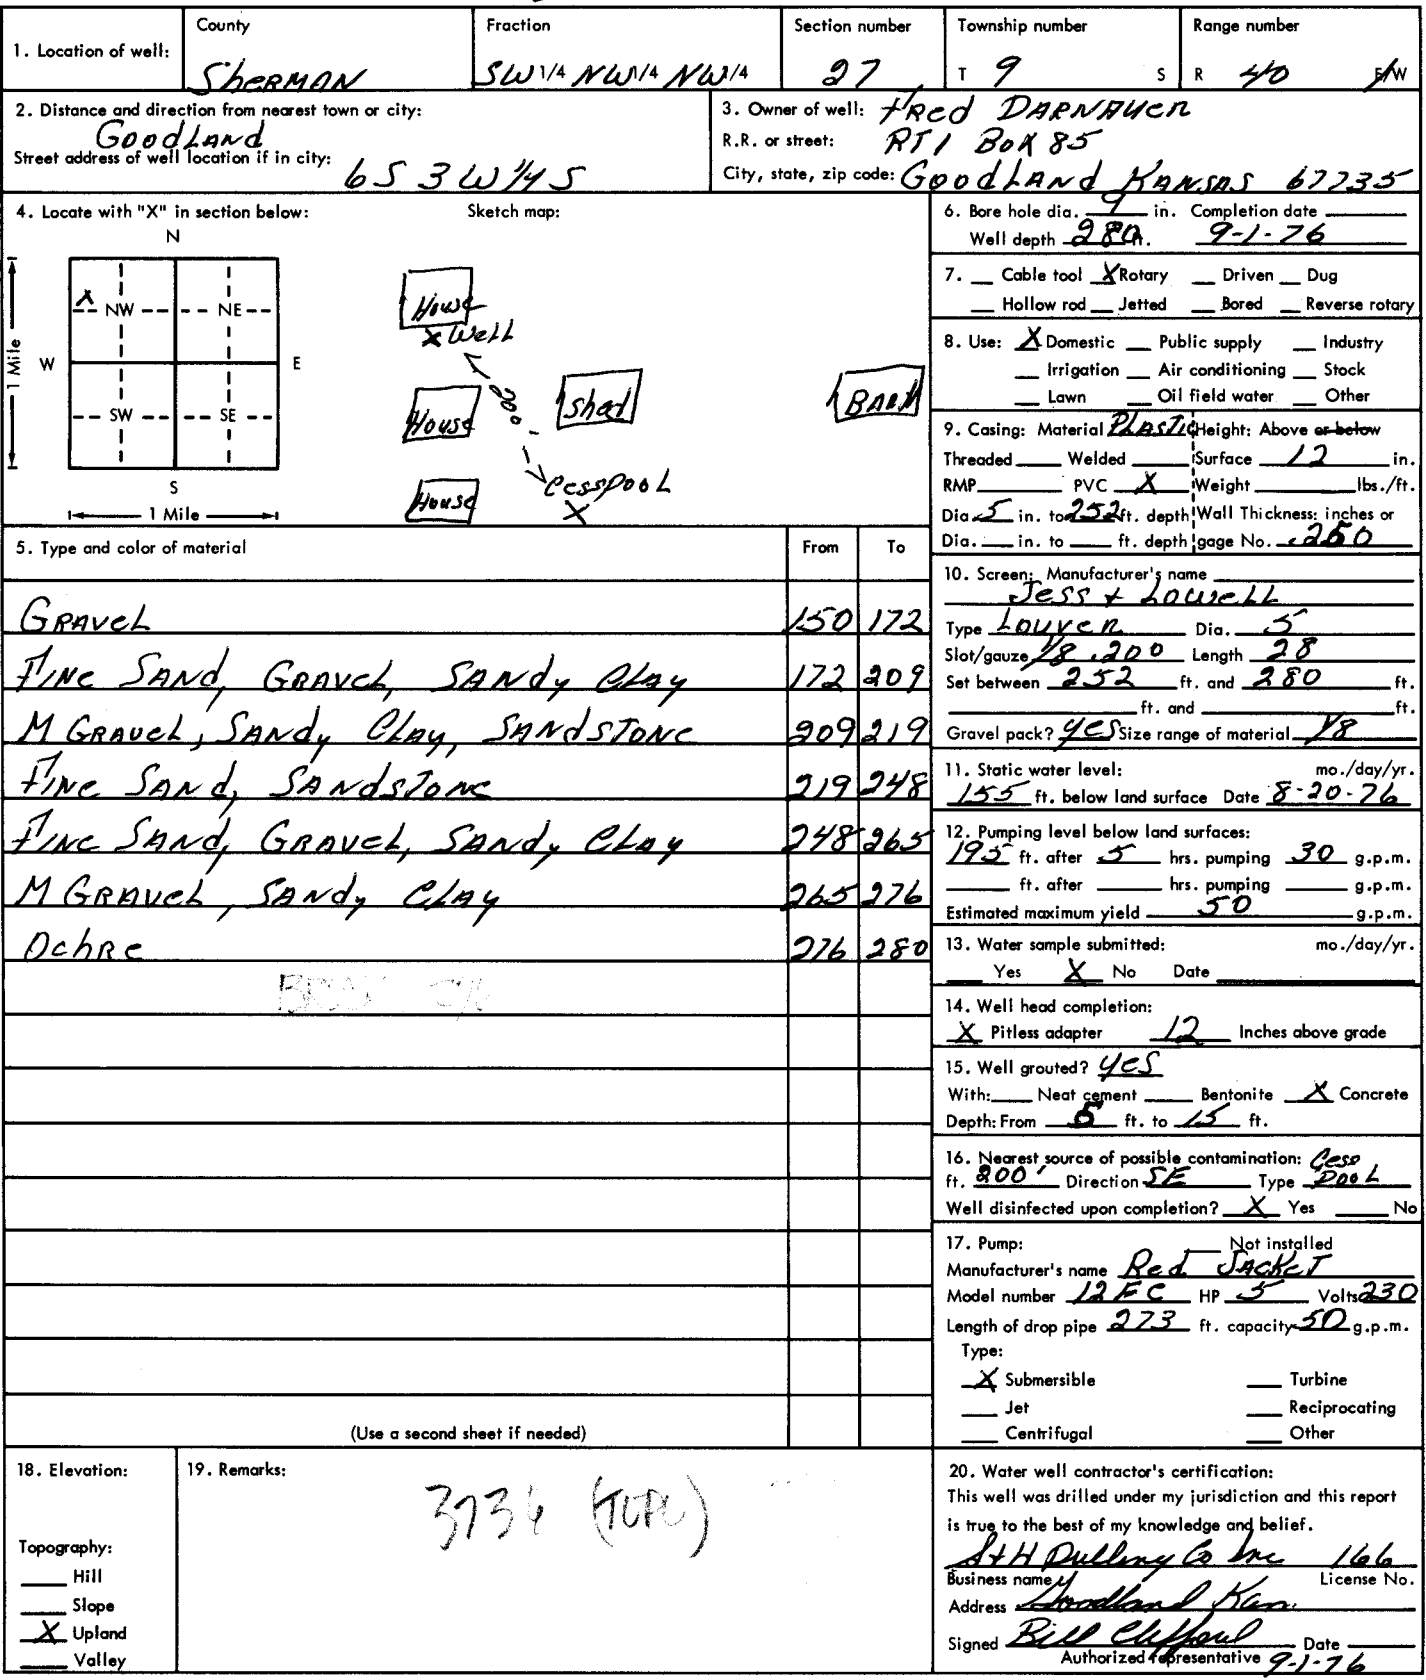 County Fraction Section number Township number Range number
1. Location of well: Sherman SW 1/4 NW 1/4 NW 1/4 27 T 9 S R 40 E/W
2. Distance and direction from nearest town or city:
Goodland
Street address of well location if in city: 6S 3W 1/4 S
3. Owner of well: Fred Darnauer
R.R. or street: RT 1 Box 85
City, state, zip code: Goodland Kansas 67735
4. Locate with "X" in section below: Sketch map:
N
X NW NE
W E
SW SE
S
1 Mile
1 Mile
House
X Well
200'
House Shed Barn
House Cesspool
X
5. Type and color of material From To
Gravel 150 172
Fine Sand, Gravel, Sandy Clay 172 209
M Gravel, Sandy Clay, Sandstone 209 219
Fine Sand, Sandstone 219 248
Fine Sand, Gravel, Sandy Clay 248 265
M Gravel, Sandy Clay 265 276
Ochre 276 280
(Use a second sheet if needed)
6. Bore hole dia. 9 in. Completion date
Well depth 280 ft. 9-1-76
7. Cable tool X Rotary Driven Dug
Hollow rod Jetted Bored Reverse rotary
8. Use: X Domestic Public supply Industry
Irrigation Air conditioning Stock
Lawn Oil field water Other
9. Casing: Material Plastic Height: Above or below
Threaded Welded Surface 12 in.
RMP PVC X Weight lbs./ft.
Dia. 5 in. to 252 ft. depth Wall Thickness: inches or
Dia. in. to ft. depth gage No. .250
10. Screen: Manufacturer's name
Jess & Lowell
Type Louver Dia. 5
Slot/gauze 1/8 .200 Length 28
Set between 252 ft. and 280 ft.
ft. and ft.
Gravel pack? yes Size range of material 1/8
11. Static water level: mo./day/yr.
155 ft. below land surface Date 8-20-76
12. Pumping level below land surfaces:
195 ft. after 5 hrs. pumping 30 g.p.m.
ft. after hrs. pumping g.p.m.
Estimated maximum yield 50 g.p.m.
13. Water sample submitted: mo./day/yr.
Yes X No Date
14. Well head completion:
X Pitless adapter 12 Inches above grade
15. Well grouted? yes
With: Neat cement Bentonite X Concrete
Depth: From 5 ft. to 15 ft.
16. Nearest source of possible contamination: Cess
ft. 200' Direction SE Type Pool
Well disinfected upon completion? X Yes No
17. Pump: Not installed
Manufacturer's name Red Jacket
Model number 12 FC HP 5 Volts 230
Length of drop pipe 273 ft. capacity 50 g.p.m.
Type:
X Submersible Turbine
Jet Reciprocating
Centrifugal Other
18. Elevation: 19. Remarks:
Topography:
Hill
Slope
X Upland
Valley
20. Water well contractor's certification:
This well was drilled under my jurisdiction and this report
is true to the best of my knowledge and belief.
S & H Drilling Co Inc 166
Business name License No.
Address Goodland Kan.
Signed Bill Clifford Date
Authorized representative 9-1-76